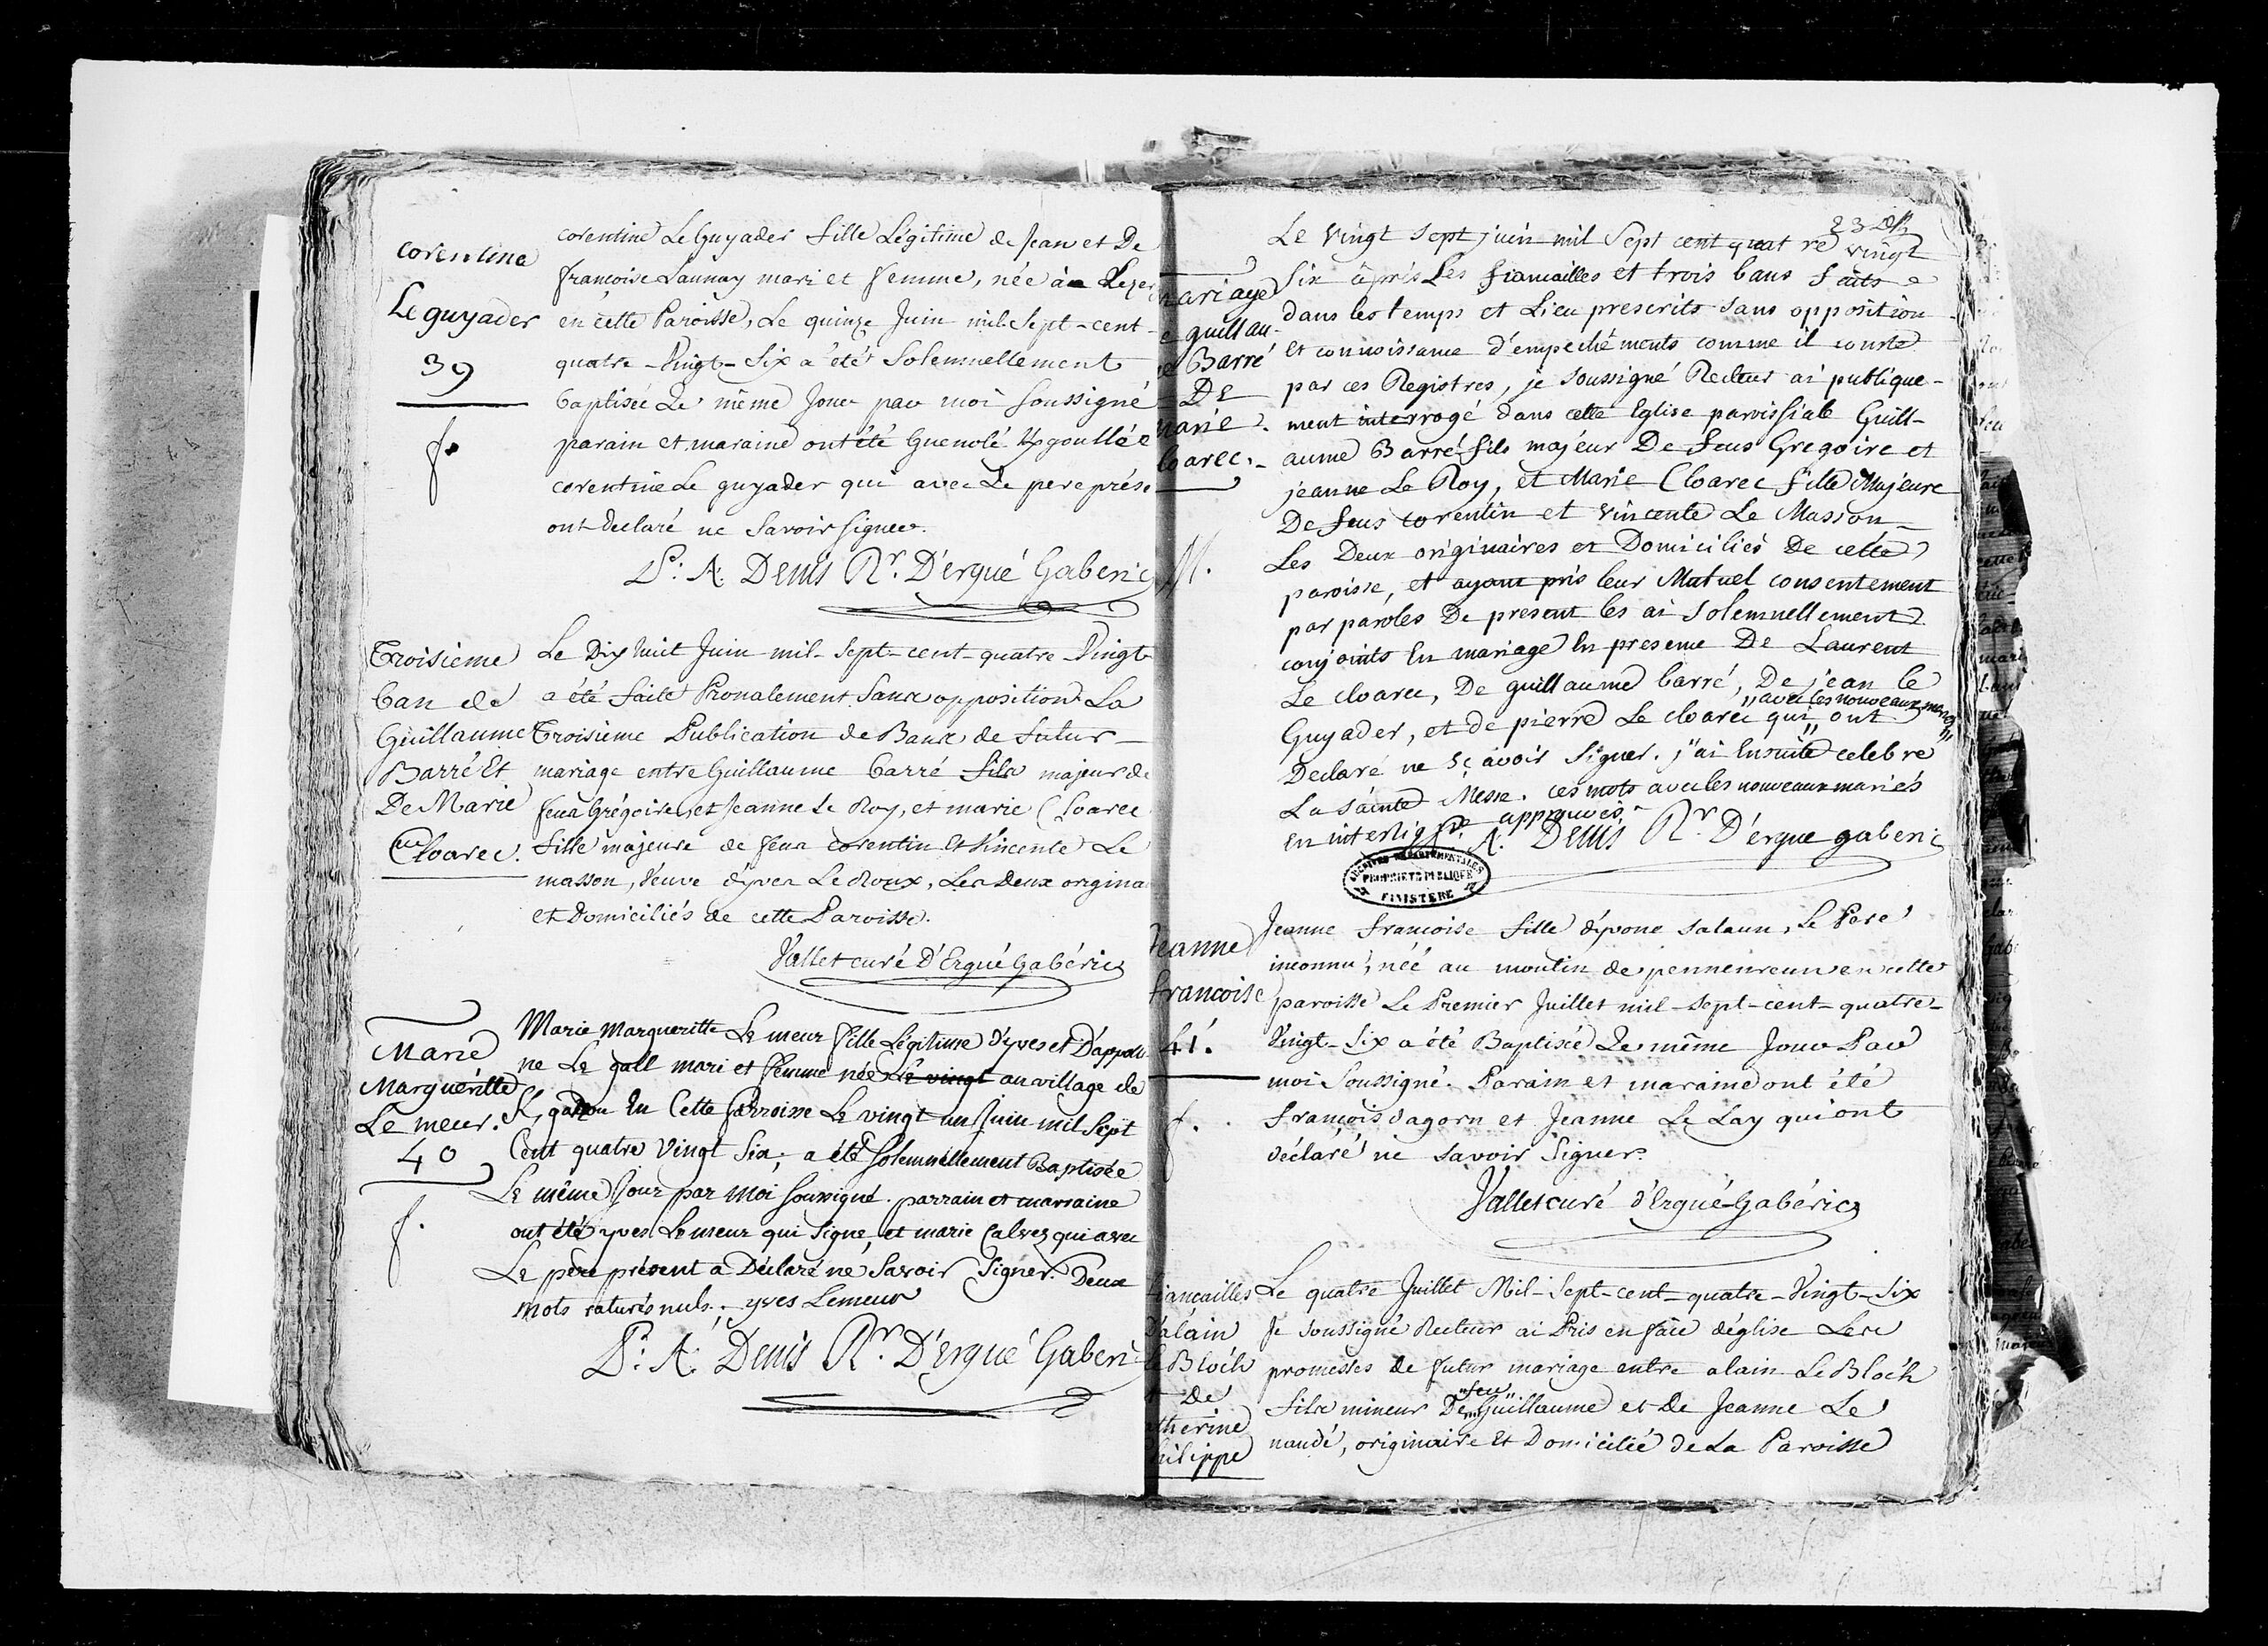 corentine
Le guyader
39
f.
corentine Le Guyader fille Légitime de Jean et De
françoise Launay mari et femme, née à
en cette Paroisse, Le quinze Juin mil-Sept-cent-
quatre-Vingt-Six a été Solemnellement
Baptisée Le même Jour par moi Soussigné
parain et maraine ont été Guenolé
corentine Le guyader qui avec Le pere prése
ont declaré ne Savoir Signer.
P: A: Denis Rr. D'ergué Gaberic
Troisieme
ban de
Guillaume
Barré Et
De Marie
Cloarec.
Le Dix huit Juin mil-Sept-cent-quatre-Vingt
a été faite Pronalement Sans opposition La
Troisieme Publication de Bans de futur
mariage entre Guillaume barré fils majeur de
feus Grégoire, et Jeanne Le Roy, et marie Cloarec
fille majeure de feus corentin Et Vincente Le
masson, Veuve d'yves Le Roux, Les Deux origina
et Domiciliés de cette Paroisse.
Vallet curé D'Ergué Gabéric
Marie
Marguéritte
Le meur.
40
f.
Marie Margueritte Le meur fille Légitime D'yves et D'appolo
ne Le gall mari et femme née Le vingt au village de
En Cette Parroisse Le vingt un Juin mil Sept
Cent quatre Vingt Six; a été Solemnellement Baptisée
Le même Jour par Moi Soussigné. parrain et marraine
ont été yves Le meur qui Signe, et marie Calvez qui avec
Le père présent a Déclaré ne Savoir Signer. Deux
Mots raturés nuls. yves Lemeur
P: A: Denis Rr. D'Ergué Gaberic
23
mariage
e guillau-
e Barré
De
marie
loarec.
M.
Le Vingt Sept juin mil Sept cent quat re vingt
Six après Les fiancailles et trois bans faits
dans les temps et Lieu prescrits sans opposition
et connoissance d'empechéments comme il conste
par ces Registres, je soussigné Recteur ai publique-
ment interrogé dans cette Eglise paroissiale Guill-
aume Barré fils majeur De feus Gregoire et
jeanne Le Roy, et Marie Cloarec fille Majeure
De feus corentin et vincente Le Masson
Les Deux originaires et Domiciliés De cette
paroisse, et ayant pris leur Mutuel consentement
par paroles De present les ai solemnellement
conjoints En mariage En presence De Laurent
Le cloarec, De guillaume barré, De jean le
"avec les nouveaux mariés"
Guyader, et de pierre Le cloarec qui,, ont
Declaré ne sçavoir Signer. j'ai Ensuite celebré
La sainte Messe. ces mots avec les nouveaux mariés
En interlig approuvés.
P: A: Denis Rr D'ergue gaberic
ARCHIVES DÉPARTEMENTALES
PROPRIÉTÉ PUBLIQUE
FINISTÈRE
Jeanne
francoise
41.
f.
Jeanne francoise fille d'yvone salaun, Le Pere
inconnu, née au moulin de pennenreun en cette
paroisse Le Premier Juillet mil-sept-cent-quatre-
Vingt-Six a été Baptisée Le même Jour Par
moi Soussigné. Parain et maraine ont été
françois dagorn et Jeanne Le Lay qui ont
déclaré ne savoir Signer.
Vallet curé d'Ergué-Gabéric
fiancailles
D'alain
Le Bloéh
t de
atherine
hilippe
Le quatre Juillet Mil-Sept-cent-quatre-Vingt-Six
Je soussigné Recteur ai Pris en face d'église Les
promesses de futur mariage entre alain Le Bloéh
"feu"
fils mineur De Guillaume et de Jeanne Le
naudé, originaire Et Domicilié de La Paroisse